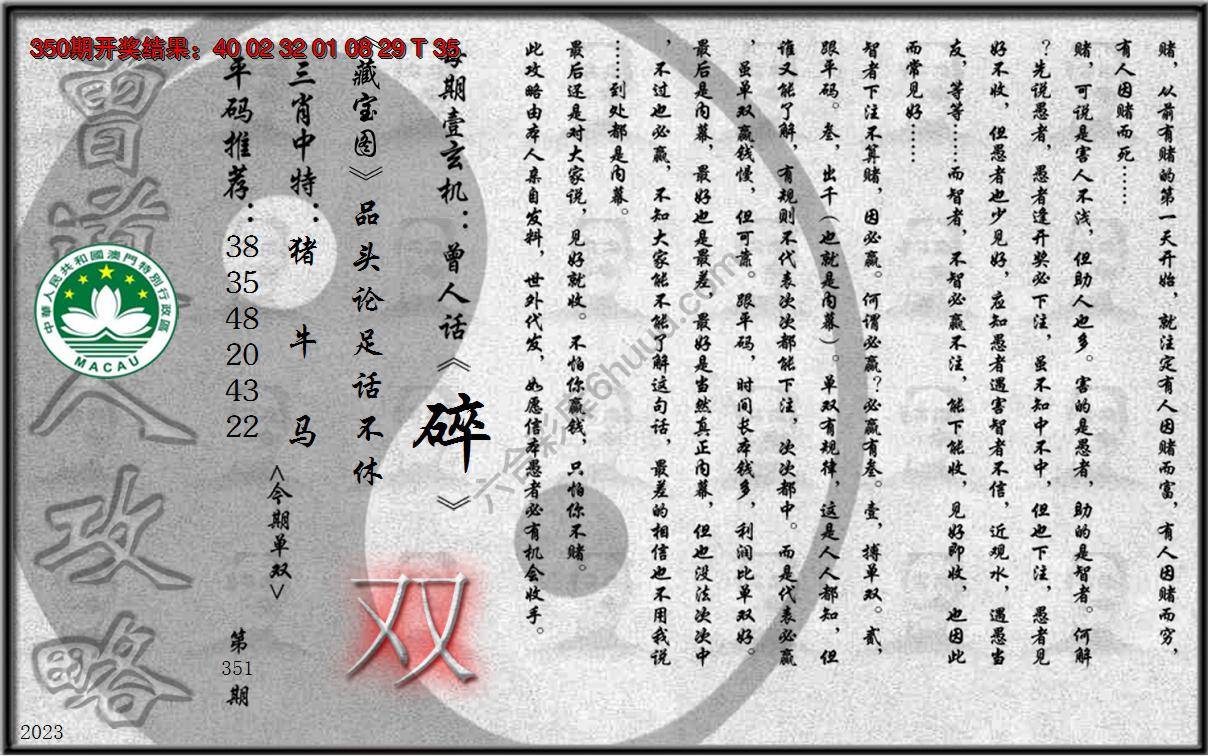 350期开奖结果：40 02 32 01 08 29 T 35
赌，从前有赌的第一天开始，就注定有人因赌而富，有人因赌而穷，
有人因赌而死……
赌，可说是害人不浅，但助人也多。害的是愚者，助的是智者。何解
？先说愚者，愚者逢开奖必下注，虽不知中不中，但也下注，愚者见
好不收，但愚者也少见好，应知愚者遇害智者不信，近观水，遇愚当
友，等等……而智者，不智必赢不注，能下能收，见好即收，也因此
而常见好……
智者下注不算赌，因必赢。何谓必赢？必赢有叁。壹，搏单双。贰，
跟平码。叁，出千（也就是内幕）。单双有规律，这是人人都知，但
谁又能了解，有规则不代表次次都能下注，次次都中。而是代表必赢
，虽单双赢钱慢，但可靠。跟平码，时间长本钱多，利润比单双好。
最后是内幕，最好也是最差，最好是当然真正内幕，但也没法次次中
，不过也必赢，不知大家能不能了解这句话，最差的相信也不用我说
……到处都是内幕。
最后还是对大家说，见好就收。不怕你赢钱，只怕你不赌。
此攻略由本人亲自发料，世外代发，如愿信本愚者必有机会收手。
每期壹玄机：曾人话《碎》
《藏宝图》品头论足话不休
双
三肖中特：猪 牛 马
<今期单双>
平码推荐：38 35 48 20 43 22
第351期
曾道人攻略
中華人民共和國澳門特別行政區
MACAU
2023
六合彩库6huu.com